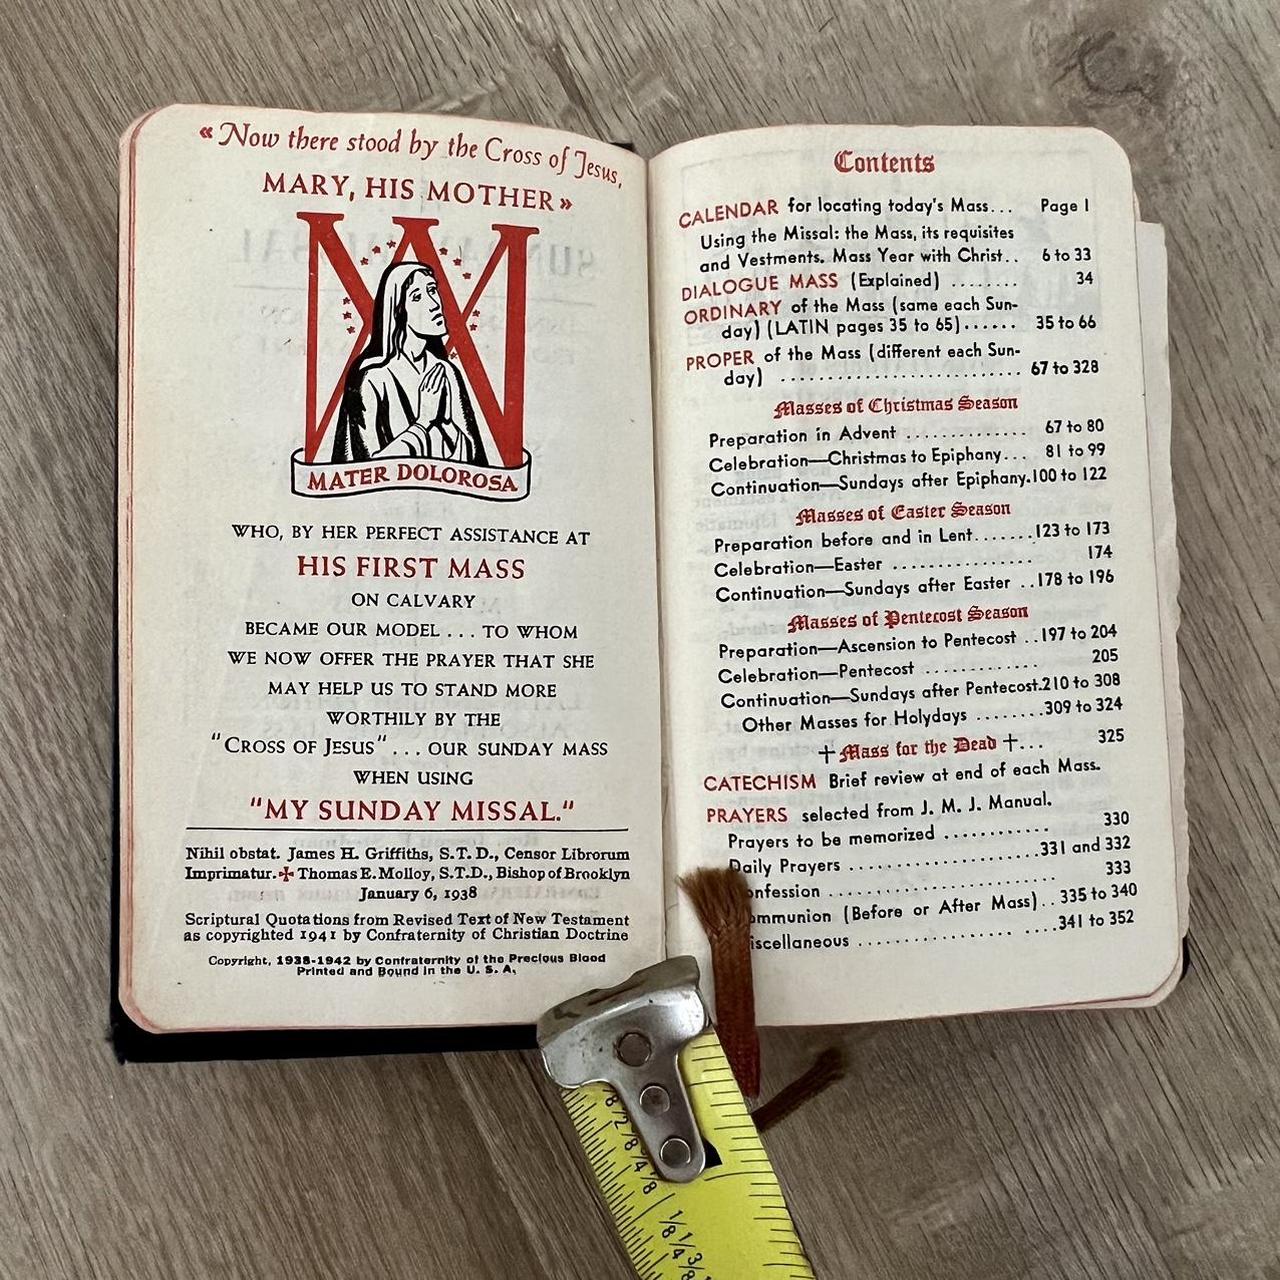 «Now there stood by the Cross of Jesus,
MARY, HIS MOTHER»
M
MATER DOLOROSA
WHO, BY HER PERFECT ASSISTANCE AT
HIS FIRST MASS
ON CALVARY
BECAME OUR MODEL . . . TO WHOM
WE NOW OFFER THE PRAYER THAT SHE
MAY HELP US TO STAND MORE
WORTHILY BY THE
"CROSS OF JESUS" . . . OUR SUNDAY MASS
WHEN USING
"MY SUNDAY MISSAL."
Nihil obstat. James H. Griffiths, S.T.D., Censor Librorum
Imprimatur.✠ Thomas E. Molloy, S.T.D., Bishop of Brooklyn
January 6, 1938
Scriptural Quotations from Revised Text of New Testament
as copyrighted 1941 by Confraternity of Christian Doctrine
Copyright, 1938-1942 by Confraternity of the Precious Blood
Printed and Bound in the U. S. A,
Contents
CALENDAR for locating today's Mass... Page 1
Using the Missal: the Mass, its requisites
and Vestments. Mass Year with Christ.. 6 to 33
DIALOGUE MASS (Explained) ........ 34
ORDINARY of the Mass (same each Sun-
day) (LATIN pages 35 to 65)...... 35 to 66
PROPER of the Mass (different each Sun-
day) .......................... 67 to 328
Masses of Christmas Season
Preparation in Advent ............. 67 to 80
Celebration—Christmas to Epiphany... 81 to 99
Continuation—Sundays after Epiphany.100 to 122
Masses of Easter Season
Preparation before and in Lent.......123 to 173
Celebration—Easter ................ 174
Continuation—Sundays after Easter ..178 to 196
Masses of Pentecost Season
Preparation—Ascension to Pentecost ..197 to 204
Celebration—Pentecost ............. 205
Continuation—Sundays after Pentecost.210 to 308
Other Masses for Holydays ........309 to 324
✝ Mass for the Dead ✝... 325
CATECHISM Brief review at end of each Mass.
PRAYERS selected from J. M. J. Manual.
Prayers to be memorized ............ 330
Daily Prayers ......................331 and 332
onfession ......................... 333
ommunion (Before or After Mass)..335 to 340
iscellaneous ......................341 to 352
1/8 1/4 3/8